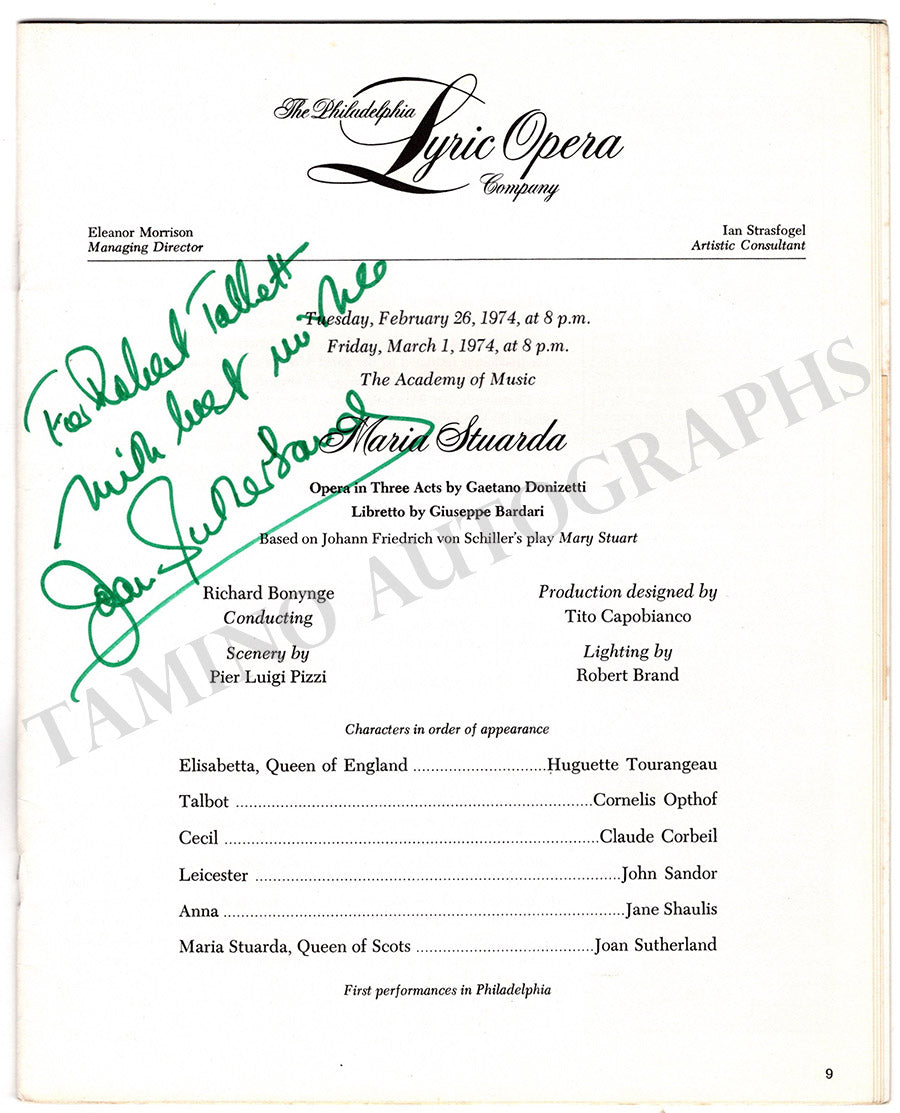 The Philadelphia
Lyric Opera
Company
Eleanor Morrison
Managing Director
Ian Strasfogel
Artistic Consultant
For Robert Tallett
with best wishes
Joan Sutherland
Tuesday, February 26, 1974, at 8 p.m.
Friday, March 1, 1974, at 8 p.m.
The Academy of Music
Maria Stuarda
Opera in Three Acts by Gaetano Donizetti
Libretto by Giuseppe Bardari
Based on Johann Friedrich von Schiller's play Mary Stuart
Richard Bonynge
Conducting
Scenery by
Pier Luigi Pizzi
Production designed by
Tito Capobianco
Lighting by
Robert Brand
Characters in order of appearance
Elisabetta, Queen of England ........................... Huguette Tourangeau
Talbot ........................... Cornelis Opthof
Cecil ........................... Claude Corbeil
Leicester ........................... John Sandor
Anna ........................... Jane Shaulis
Maria Stuarda, Queen of Scots ........................... Joan Sutherland
First performances in Philadelphia
9
TAMINO AUTOGRAPHS